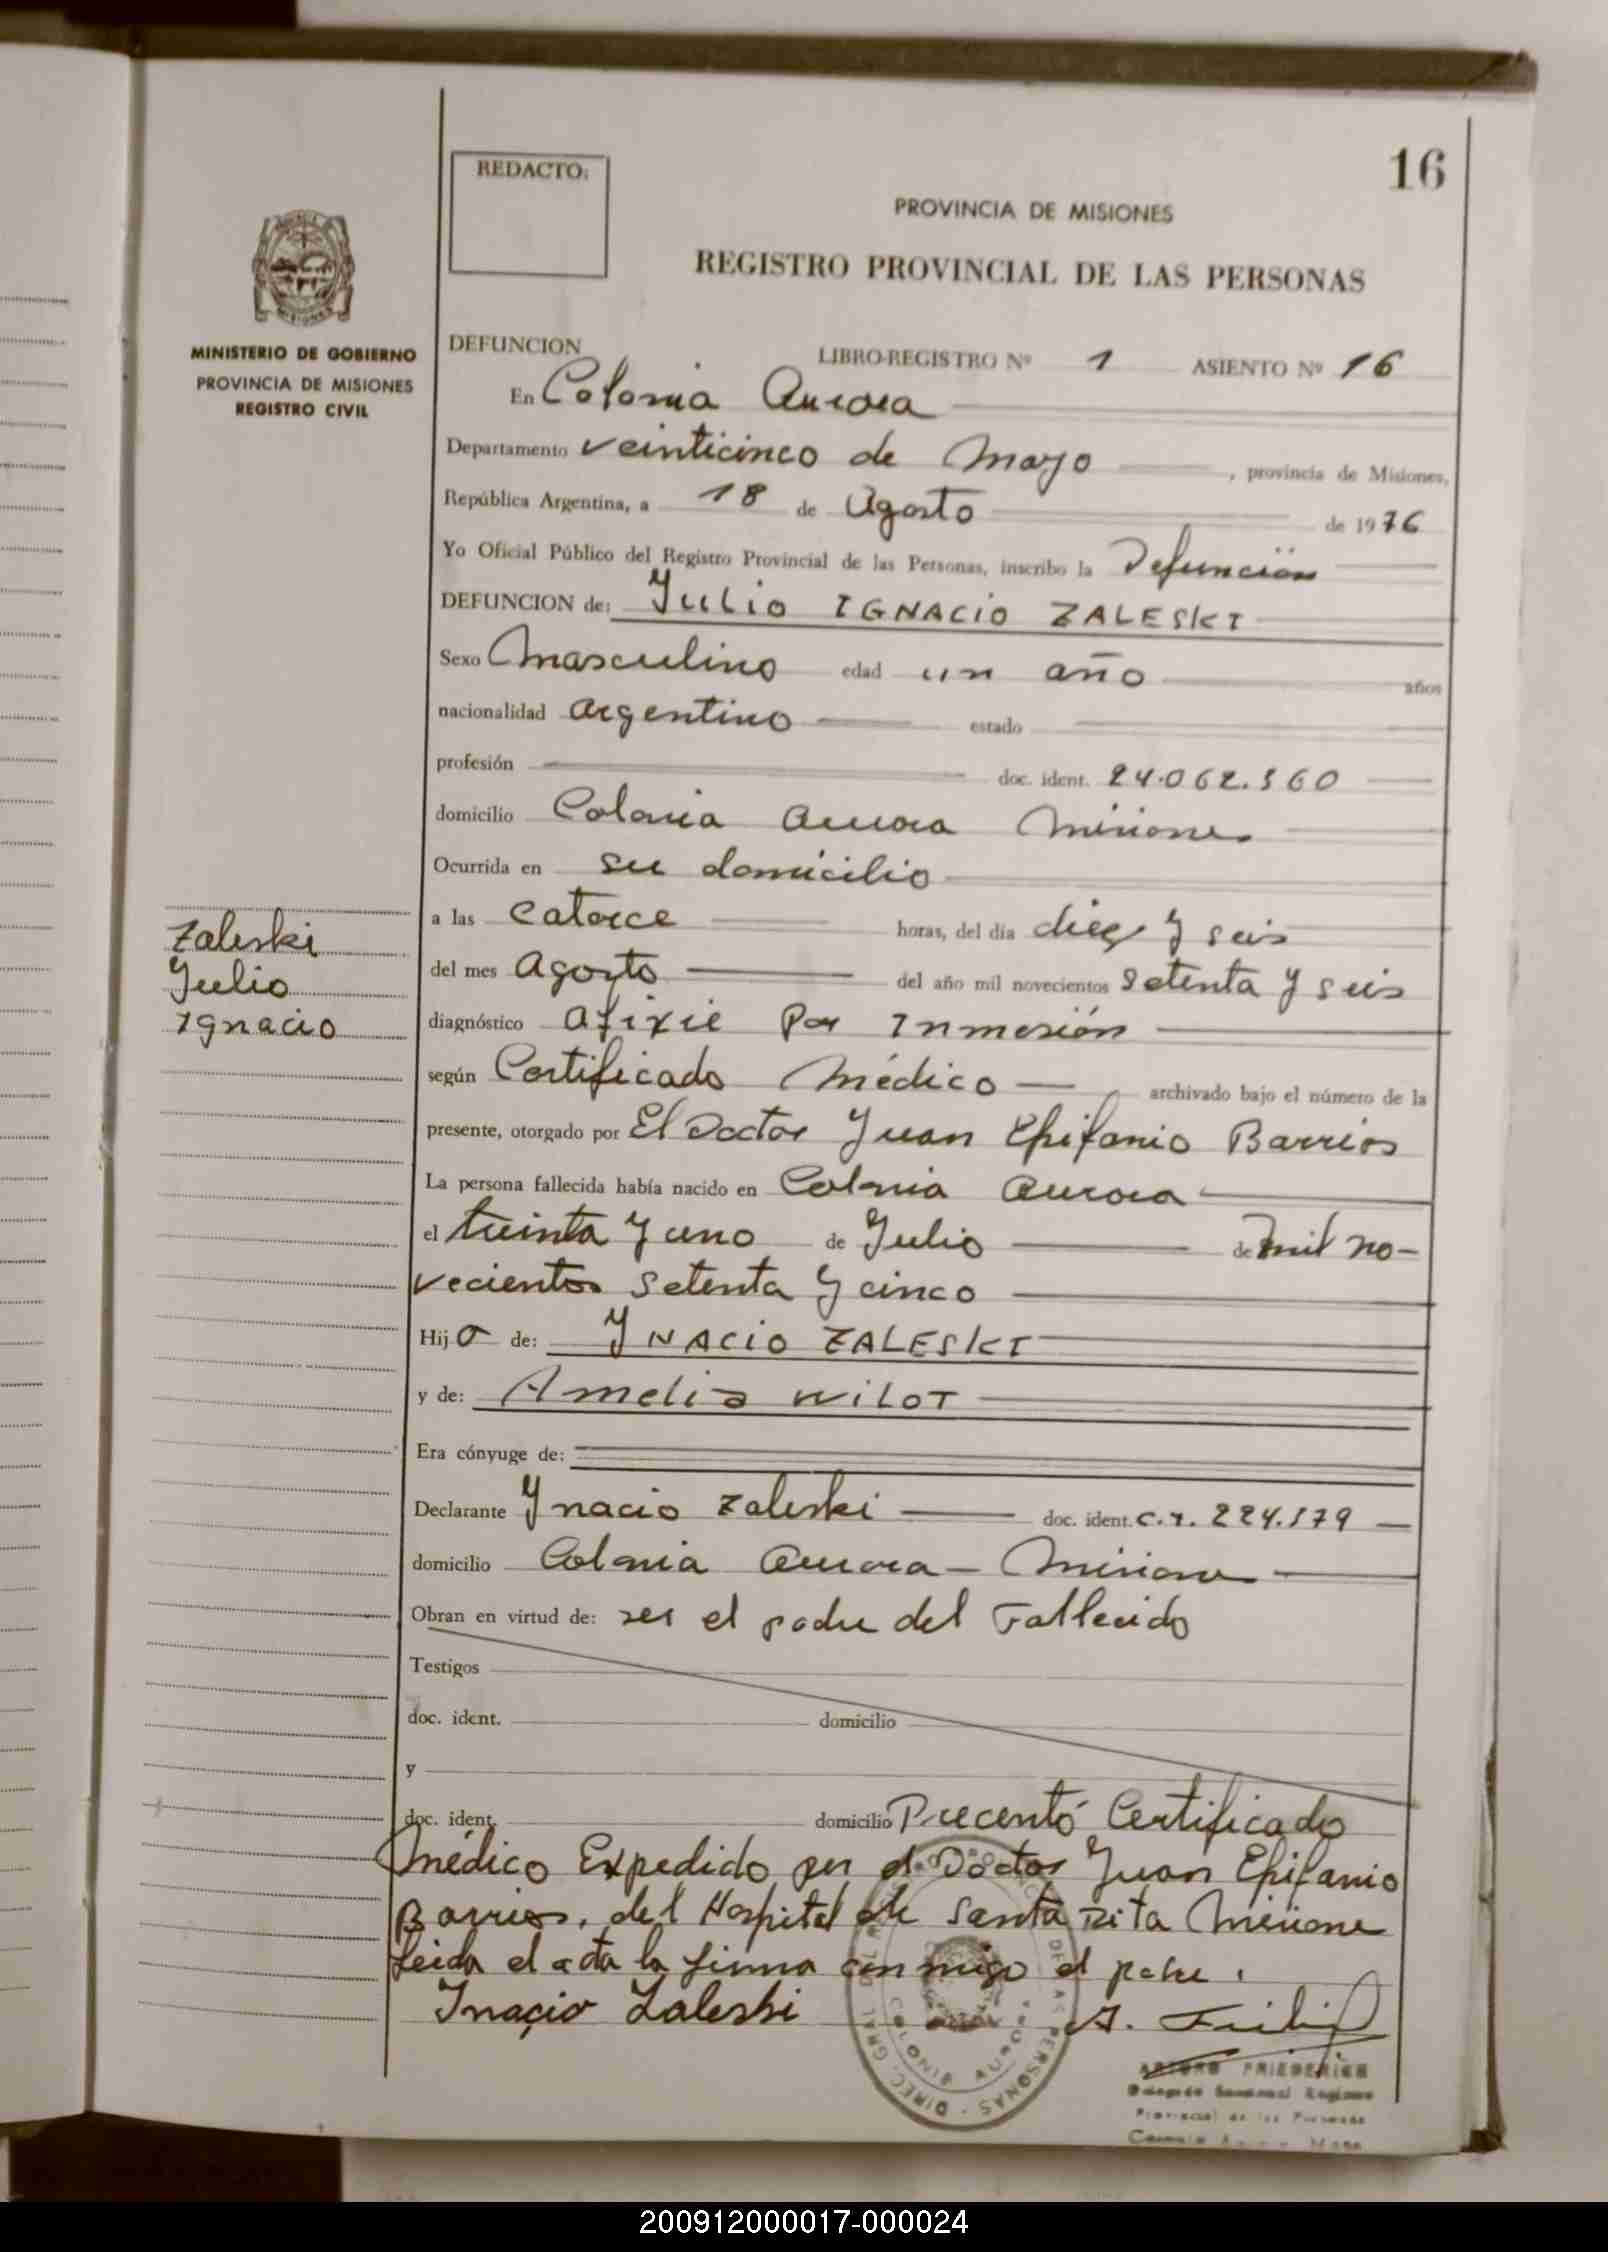 16
REDACTO:
PROVINCIA DE MISIONES
REGISTRO PROVINCIAL DE LAS PERSONAS
MISIONES
MINISTERIO DE GOBIERNO
PROVINCIA DE MISIONES
REGISTRO CIVIL
DEFUNCION LIBRO-REGISTRO Nº 1 ASIENTO Nº 16
En Colonia Aurora
Departamento veinticinco de Mayo , provincia de Misiones,
República Argentina, a 18 de Agosto de 1976
Yo Oficial Público del Registro Provincial de las Personas, inscribo la Defunción
DEFUNCION de: JULIO IGNACIO ZALESKI
Sexo Masculino edad un año años
nacionalidad Argentino estado
profesión doc. ident. 24.062.360
domicilio Colonia Aurora Misiones
Ocurrida en su domicilio
a las catorce horas, del día diez y seis
del mes Agosto del año mil novecientos setenta y seis
diagnóstico Afixie Por Inmesión
según Certificado Médico archivado bajo el número de la
presente, otorgado por El Doctor Juan Epifanio Barrios
La persona fallecida había nacido en Colonia Aurora
el treinta y uno de Julio de mil no-
vecientos setenta y cinco
Hijo de: YNACIO ZALESKI
y de: Amelia WILOT
Era cónyuge de:
Declarante Ynacio Zaleski doc. ident. C.I. 224.579
domicilio Colonia Aurora - Misiones
Obran en virtud de: ser el padre del Fallecido
Testigos
doc. ident. domicilio
y
doc. ident. domicilio Precentó Certificado
Médico Expedido por el Doctor Juan Epifanio
Barrios, del Hospital de Santa Rita Misiones
leida el acta la firma conmigo el padre.
Inacio Zaleski
Zaleski
Julio
Ignacio
COLONIA AURORA
DE LAS PERSONAS - DIREC. GRAL.
ARTURO FRIEDERICH
200912000017-000024